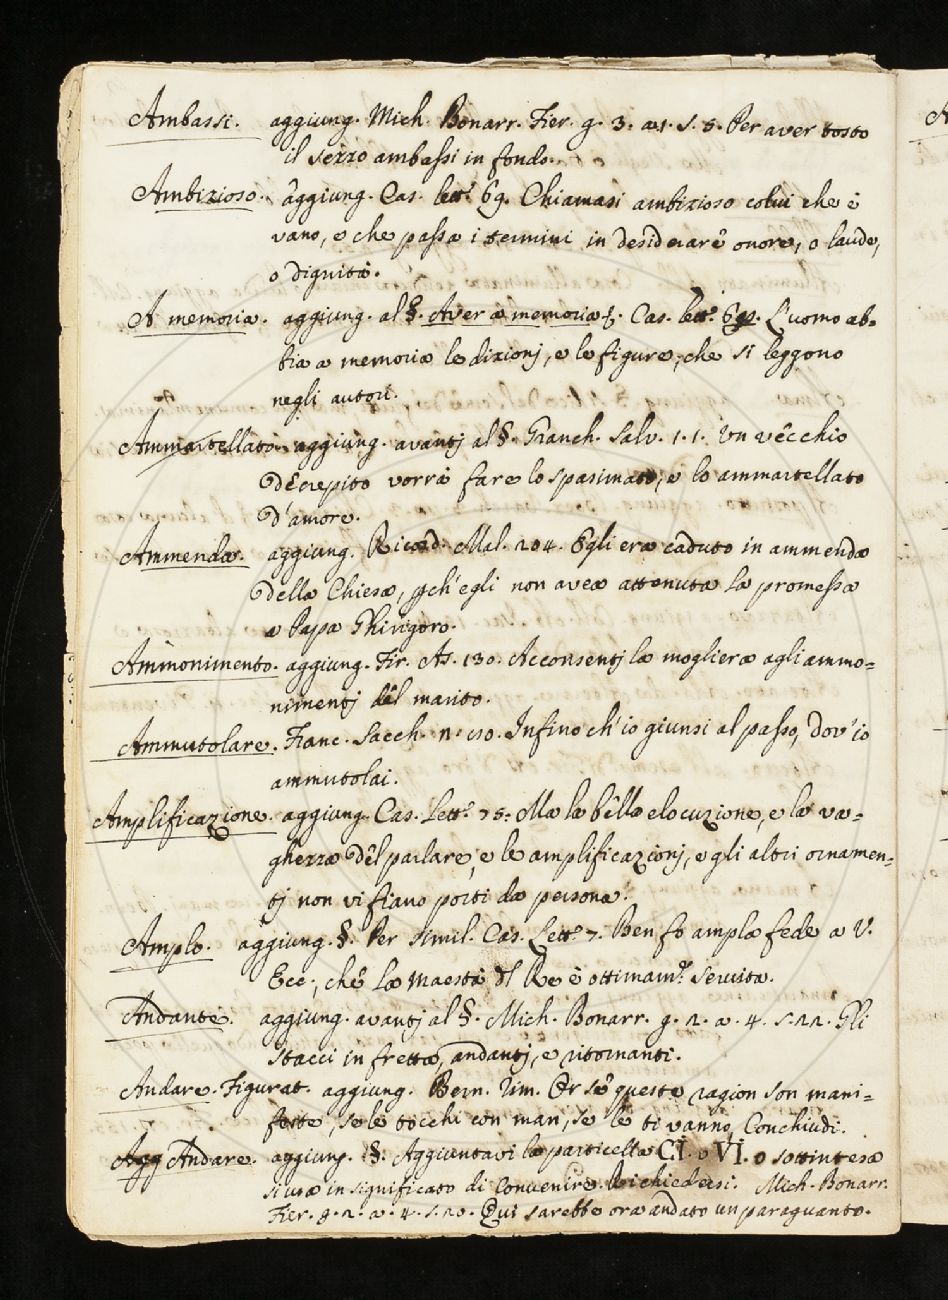 Ambassi. aggiung. Mich. Bonarr. Fier. g. 3. a.1. s. 5. Per aver tosto
il sezzo ambassi in fondo.
Ambizioso. aggiung. Cas. lett. 69. Chiamasi ambizioso colui che è
vano, e che passa i termini in desiderare onore, o laude,
o dignità.
A memoria. aggiung. al §. Aver a memoria. Cas. lett. L'uomo ab-
bia a memoria le dizionj, e le figure, che si leggono
negli autori.
Ammartellato. aggiung. avantj al §. Granch. Salv. 1. 1. Un vecchio
decrepito vorrà fare lo spasimato, e lo ammartellato
d'amore.
Ammenda. aggiung. Ricord. Mal. 204. Egli era caduto in ammenda
della Chiesa, pch'egli non avea attenuta la promessa
a Papa Ghirigoro.
Ammonimento. aggiung. Fir. As. 130. Acconsentj la mogliera agli ammo=
nimentj del marito.
Ammutolare. Franc. Sacch. n. Infino ch'io giunsi al passo, dov'io
ammutolai.
Amplificazione. aggiung. Cas. Lett. 75. Ma la bella elocuzione, e la va=
ghezza del parlare, e le amplificazionj, e gli altri ornamen=
tj non vi fiano porti da persona.
Amplo. aggiung. §. Per simil. Cas. Lett. 7. Ben fo ampla fede a V.
Ecc., che la Maestà dl Re è ottimamte servita.
Andante. aggiung. avantj al §. Mich. Bonarr. g. 2. a. 4. s. 22. Gli
stacci in fretta, andantj, e ritornanti.
Andare. Figurat. aggiung. Bern. rim. Or se queste ragion son mani=
feste, se le tocchi con man, se le ti vanno, Conchiudi.
Andare. aggiung. §. Aggiuntavi la particella CI. o VI. o sottintesa
si usa in significato di Convenire. Richiedersi. Mich. Bonarr.
Fier. g. 2. a. 4. s. 20. Qui sarebbe ora andato un paraguanto.